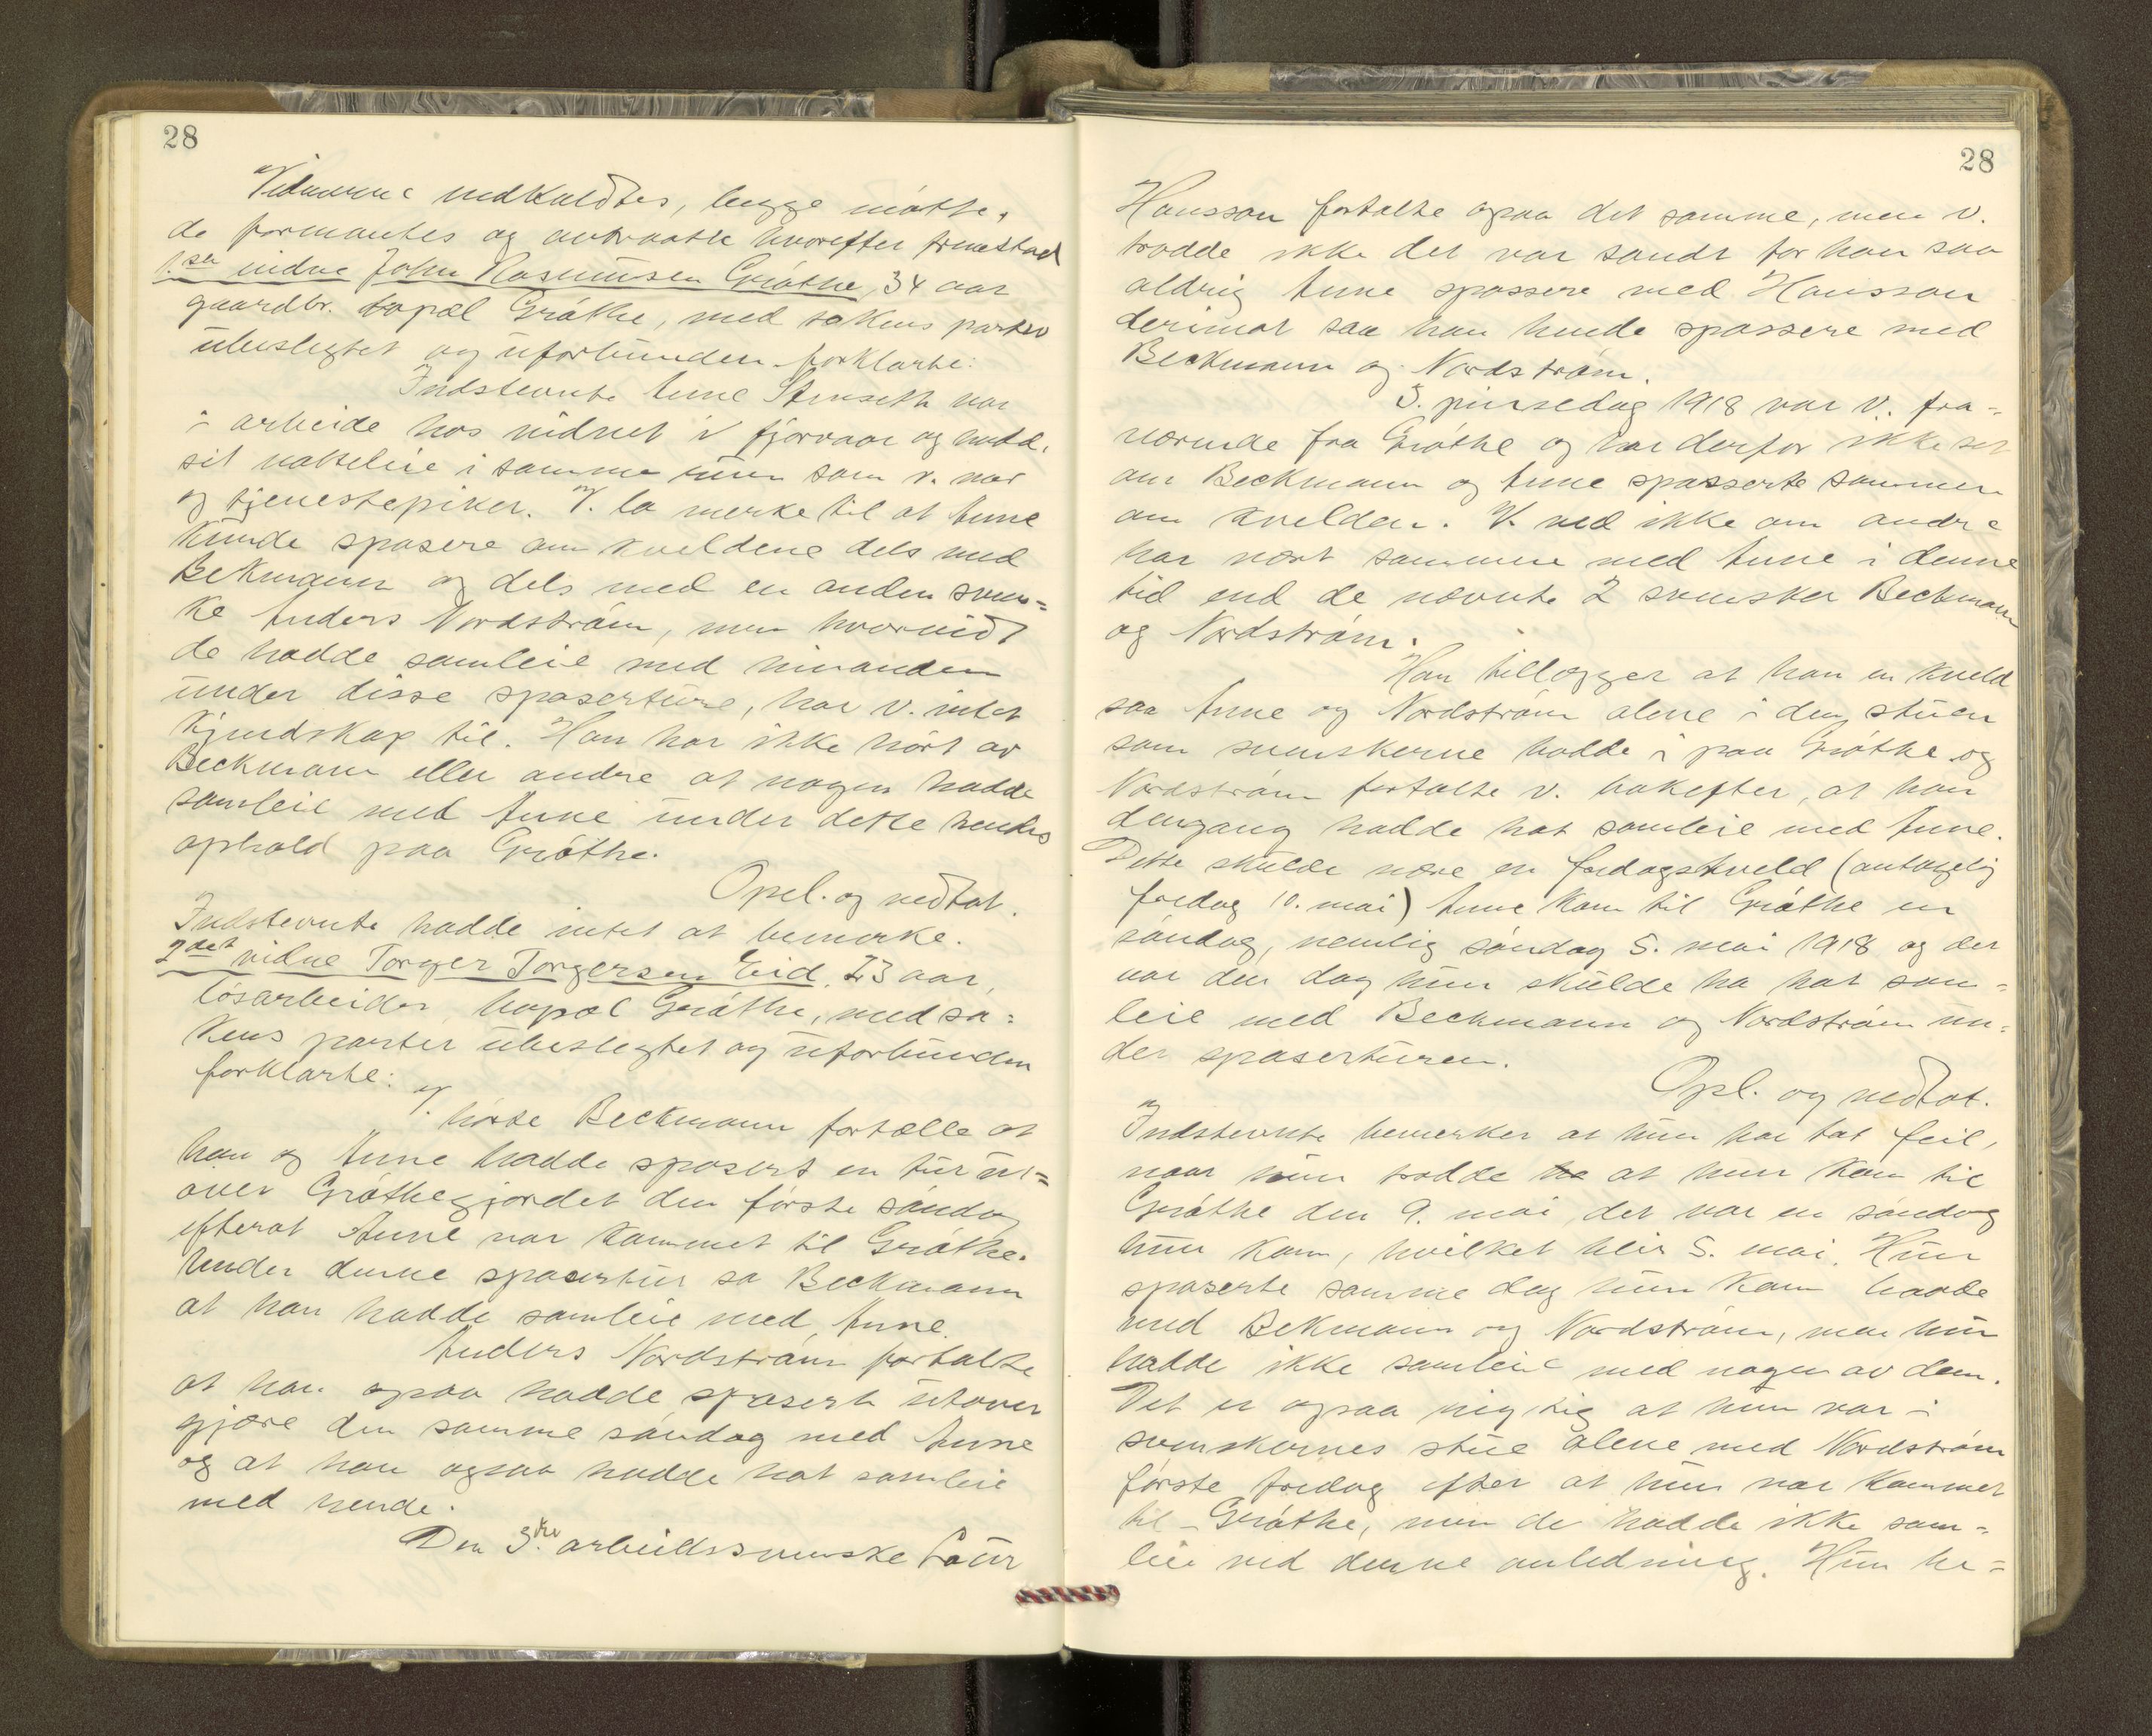 28
Vidnerne indkaldtes, begge møtte,
de formantes og avtraatte hvorefter fremstod
1.ste vidne John Rasmussen Gråthe, 34 aar
gaardbr. bopæl Gråthe, med sakens parter
ubeslegtet og uforbunden forklarte:
Indstevnte Anne Stenseth var
i arbeide hos vidnet i fjorvaar og hadde
sit natteleie i samme uren som v. var
og tjenestepiker. V. la merke til at Anne
kunde spasere om kveldene dels med
Bekmann og dels med en anden svens=
ke Anders Nordstrøm, men hvorvidt
de hadde samleie med hinanden
under disse spaserture, har v. intet
kjendskap til. Han har ikke hørt av
Beckmann eller andre at nogen hadde
samleie med Anne under dette hendes
ophold paa Gråthe.
Opl. og vedtat.
Indstevnte hadde intet at bemerke.
2det vidne Torger Torgersen Eid, 23 aar,
løsarbeider, bopæl Gråthe, med sa=
kens parter ubeslegtet og uforbunden
forklarte:
V. hørte Beckmann fortælle at
han og Anne hadde spasert en tur ut=
over Gråthegjordet den første søndag
efterat Anne var kommet til Gråthe.
Under denne spasertur sa Beckmann
at han hadde samleie med Anne.
Anders Nordstrøm fortalte
at han ogsaa hadde spasert utover
gjøre den samme søndag med Anne
og at han ogsaa hadde hat samleie
med hende.
Den 3.die arbeidssvenske
28
Hansson fortalte ogsaa det samme, men v.
trodde ikke det var sandt for han saa
aldrig Anne spassere med Hansson
derimot saa han hende spassere med
Beckmann og Nordstrøm.
3. pinsedag 1918 var v. fra=
værende fra Gråthe og har derfor ikke set
om Beckmann og Anne spasserte sammen
om kvelden. V. ved ikke om andre
har vært sammen med Anne i denne
tid end de nævnte 2 svensker Beckmann
og Nordstrøm.
Han tillægger at han en kveld
saa Anne og Nordstrøm alene i den stuen
som svenskerne bodde i paa Gråthe og
Nordstrøm fortalte v. bakefter, at han
dengang hadde hat samleie med Anne.
Dette skulde være en fredagskveld (antagelig
fredag 10. mai) Anne kom til Gråthe en
søndag, nemlig søndag 5. mai 1918 og det
var den dag hun skulde ha hat sam=
leie med Beckmann og Nordstrøm un=
der spaserturen.
Opl. og vedtat.
Indstevnte bemerker at hun har tat feil,
naar hun trodde ha at hun kom til
Gråthe den 9. mai, det var en søndag
hun kom, hvilket blir 5. mai. Hun
spaserte samme dag hun kom baade
med Bekmann og Nordstrøm, men hun
hadde ikke samleie med nogen av dem.
Det er ogsaa rigtig at hun var i
svenskernes stue alene med Nordstrøm
første fredag efter at hun var kommet
til Gråthe, men de hadde ikke sam=
leie ved denne anledning. Hun be=